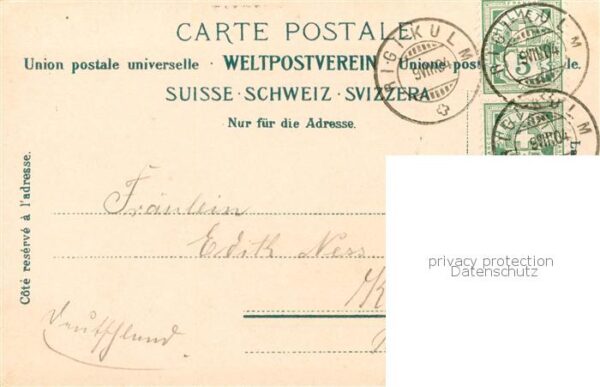 CARTE POSTALE
Union postale universelle · WELTPOSTVEREIN · Unione pos le.
SUISSE · SCHWEIZ · SVIZZERA
Nur für die Adresse.
RIGI KULM
9VIII.04
5
Côté reservé à l'adresse.
Fräulein
Edith Ness
Deutschland
privacy protection
Datenschutz